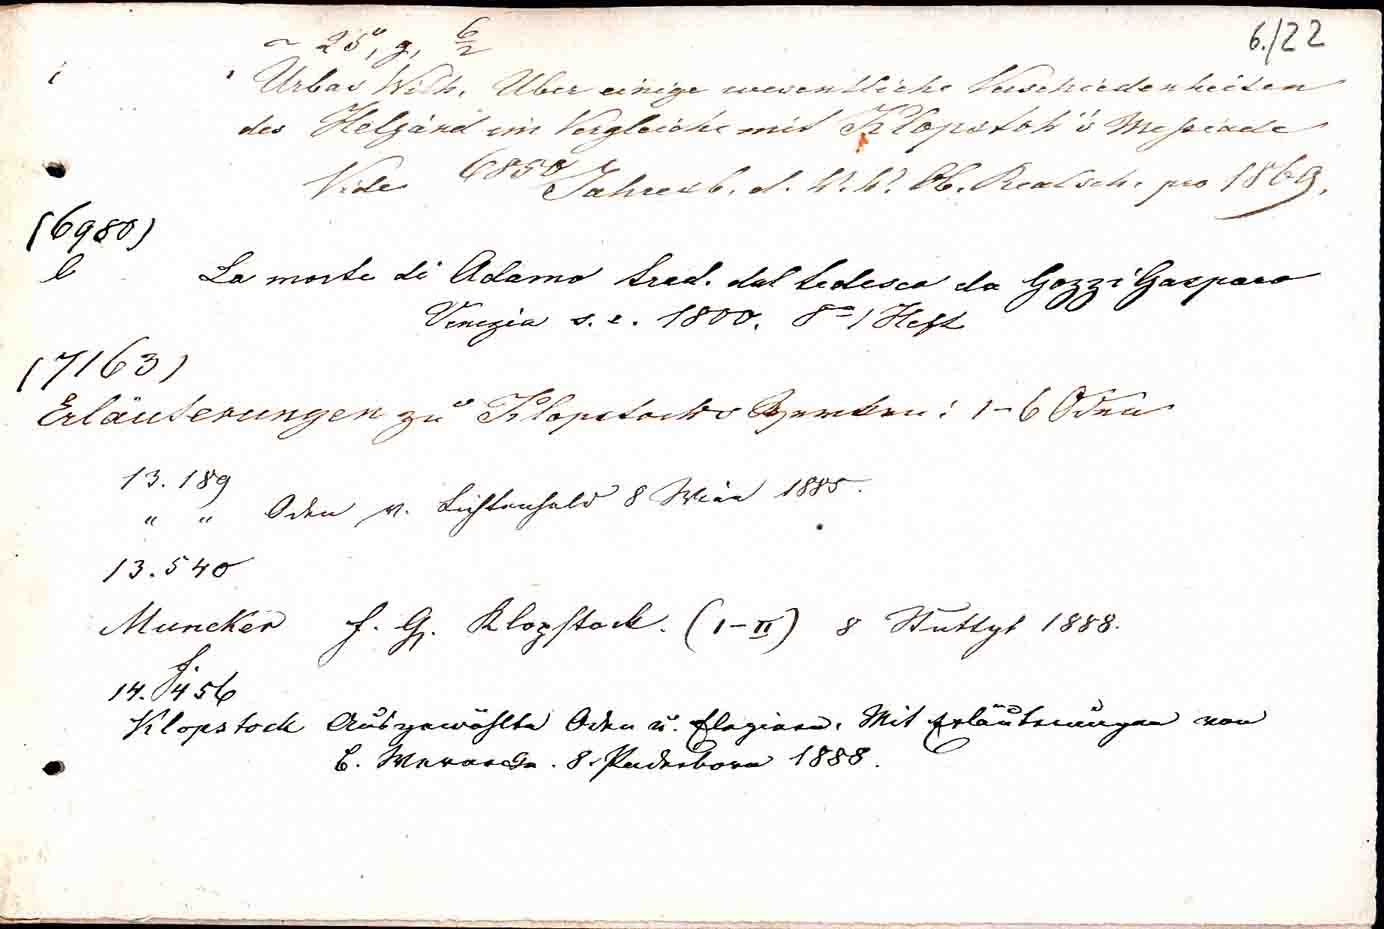 6./22
~ 25", g, 6/2
i ' Urbas Wilh. Über einige wesentliche Verschiedenheiten
des Heljand im Vergleiche mit Klopstok's Messiade
Vide 6850 Jahresb. d. k. k. Ob. Realsch. pro 1869.
(6980)
b La morte di Adamo trad. dal tedesco da Gozzi Gasparo
Venezia s. e. 1800. 8° 1 Heft
(7163)
Erläuterungen zu Klopstocks Werken: 1-6 Oden
13.189
" " Oden v. Lichtenheld 8 Wien 1885.
13.540
Muncker F. G. Klopstock. (I-II) 8 Stuttgt 1888.
14.456
Klopstock Ausgewählte Oden u. Elegieen. Mit Erläuterungen von
B. Werneke. 8. Paderborn 1888.